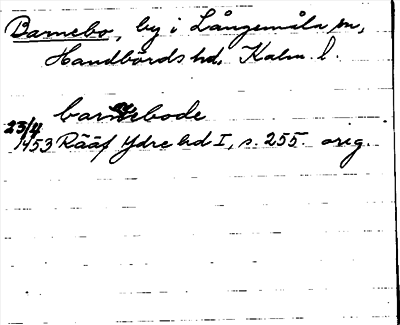 Barnebo, by i Långemåla sn,
Handbörds hd, Kalm. l.
barnebode
23/4
1453 Rääf Ydre hd I, s. 255. orig.